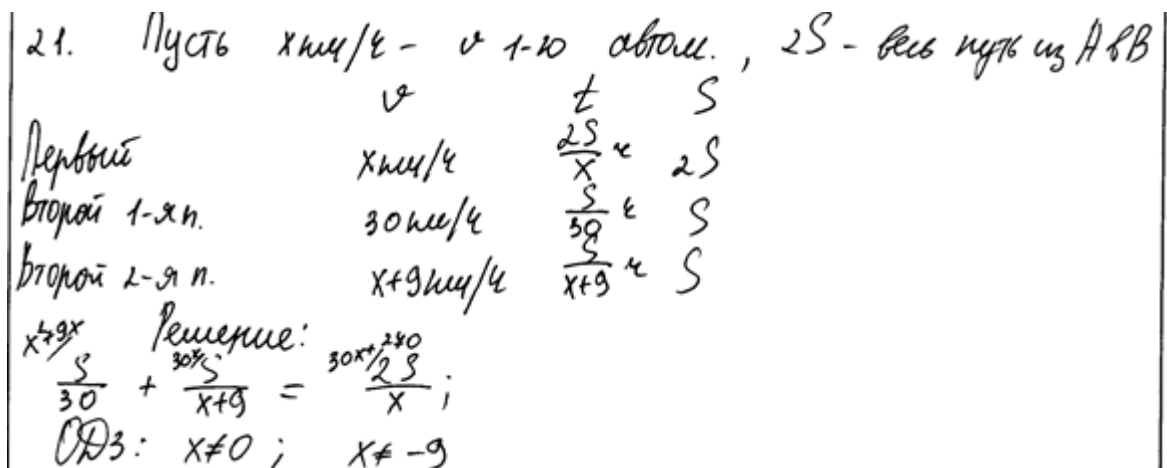 21. Пусть x км/ч - v 1-го автом., 2S - весь путь из А в В
v t S
Первый x км/ч 2S/x ч 2S
Второй 1-я п. 30 км/ч S/30 ч S
Второй 2-я п. x+9 км/ч S/x+9 ч S
Решение:
x²+9x/ S/30 + 30x/ S/x+9 = 30x+270/ 2S/x ;
ОДЗ: x≠0 ; x≠ -9